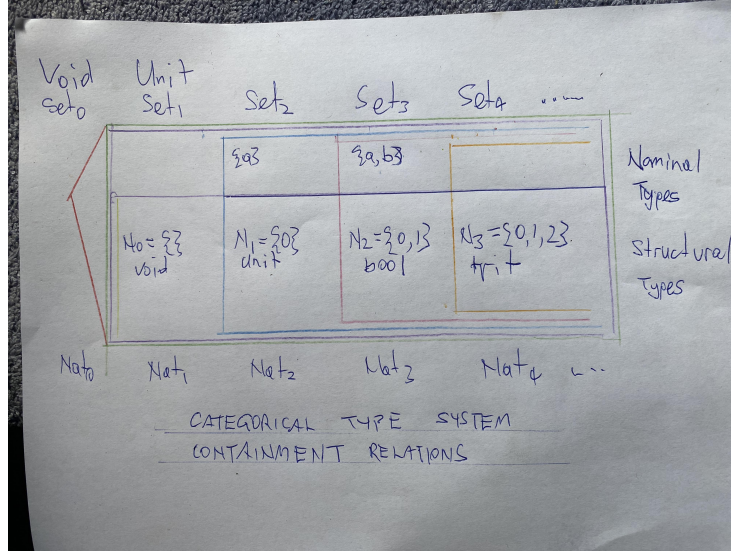 Void Unit
Set₀ Set₁ Set₂ Set₃ Set₄ ......
{a} {a,b} Nominal Types
N₀={} void
N₁={0} unit
N₂={0,1} bool
N₃={0,1,2}. trit
Structural Types
Nat₀ Nat₁ Nat₂ Nat₃ Nat₄ ....
CATEGORICAL TYPE SYSTEM
CONTAINMENT RELATIONS